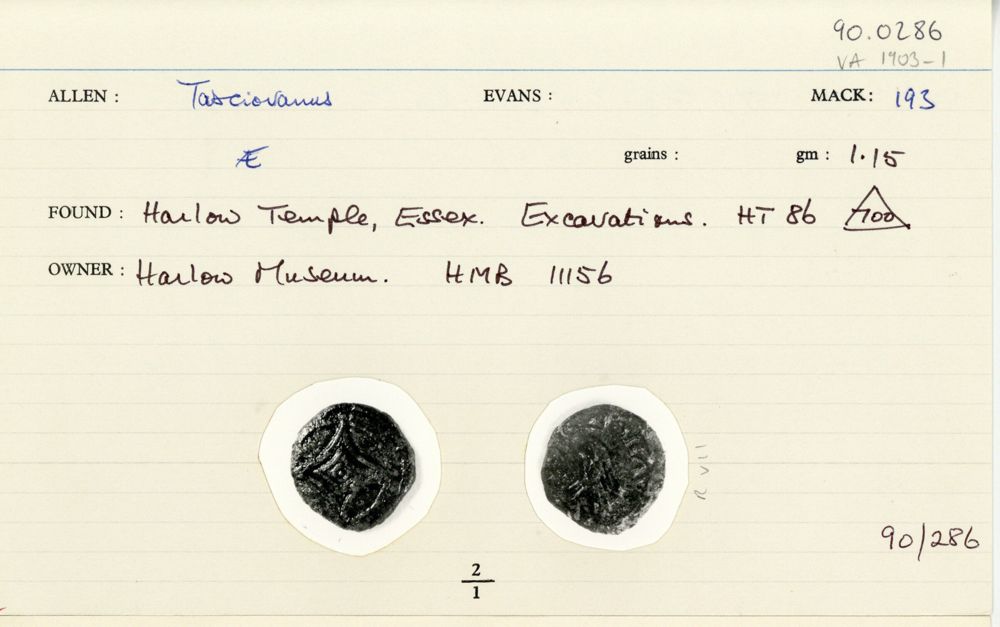 90.0286
VA 1903-1
ALLEN : Tasciovanus EVANS : MACK: 193
Æ grains : gm : 1.15
FOUND : Harlow Temple, Essex. Excavations. HT 86 700
OWNER : Harlow Museum. HMB 11156
R VII
90/286
2
1